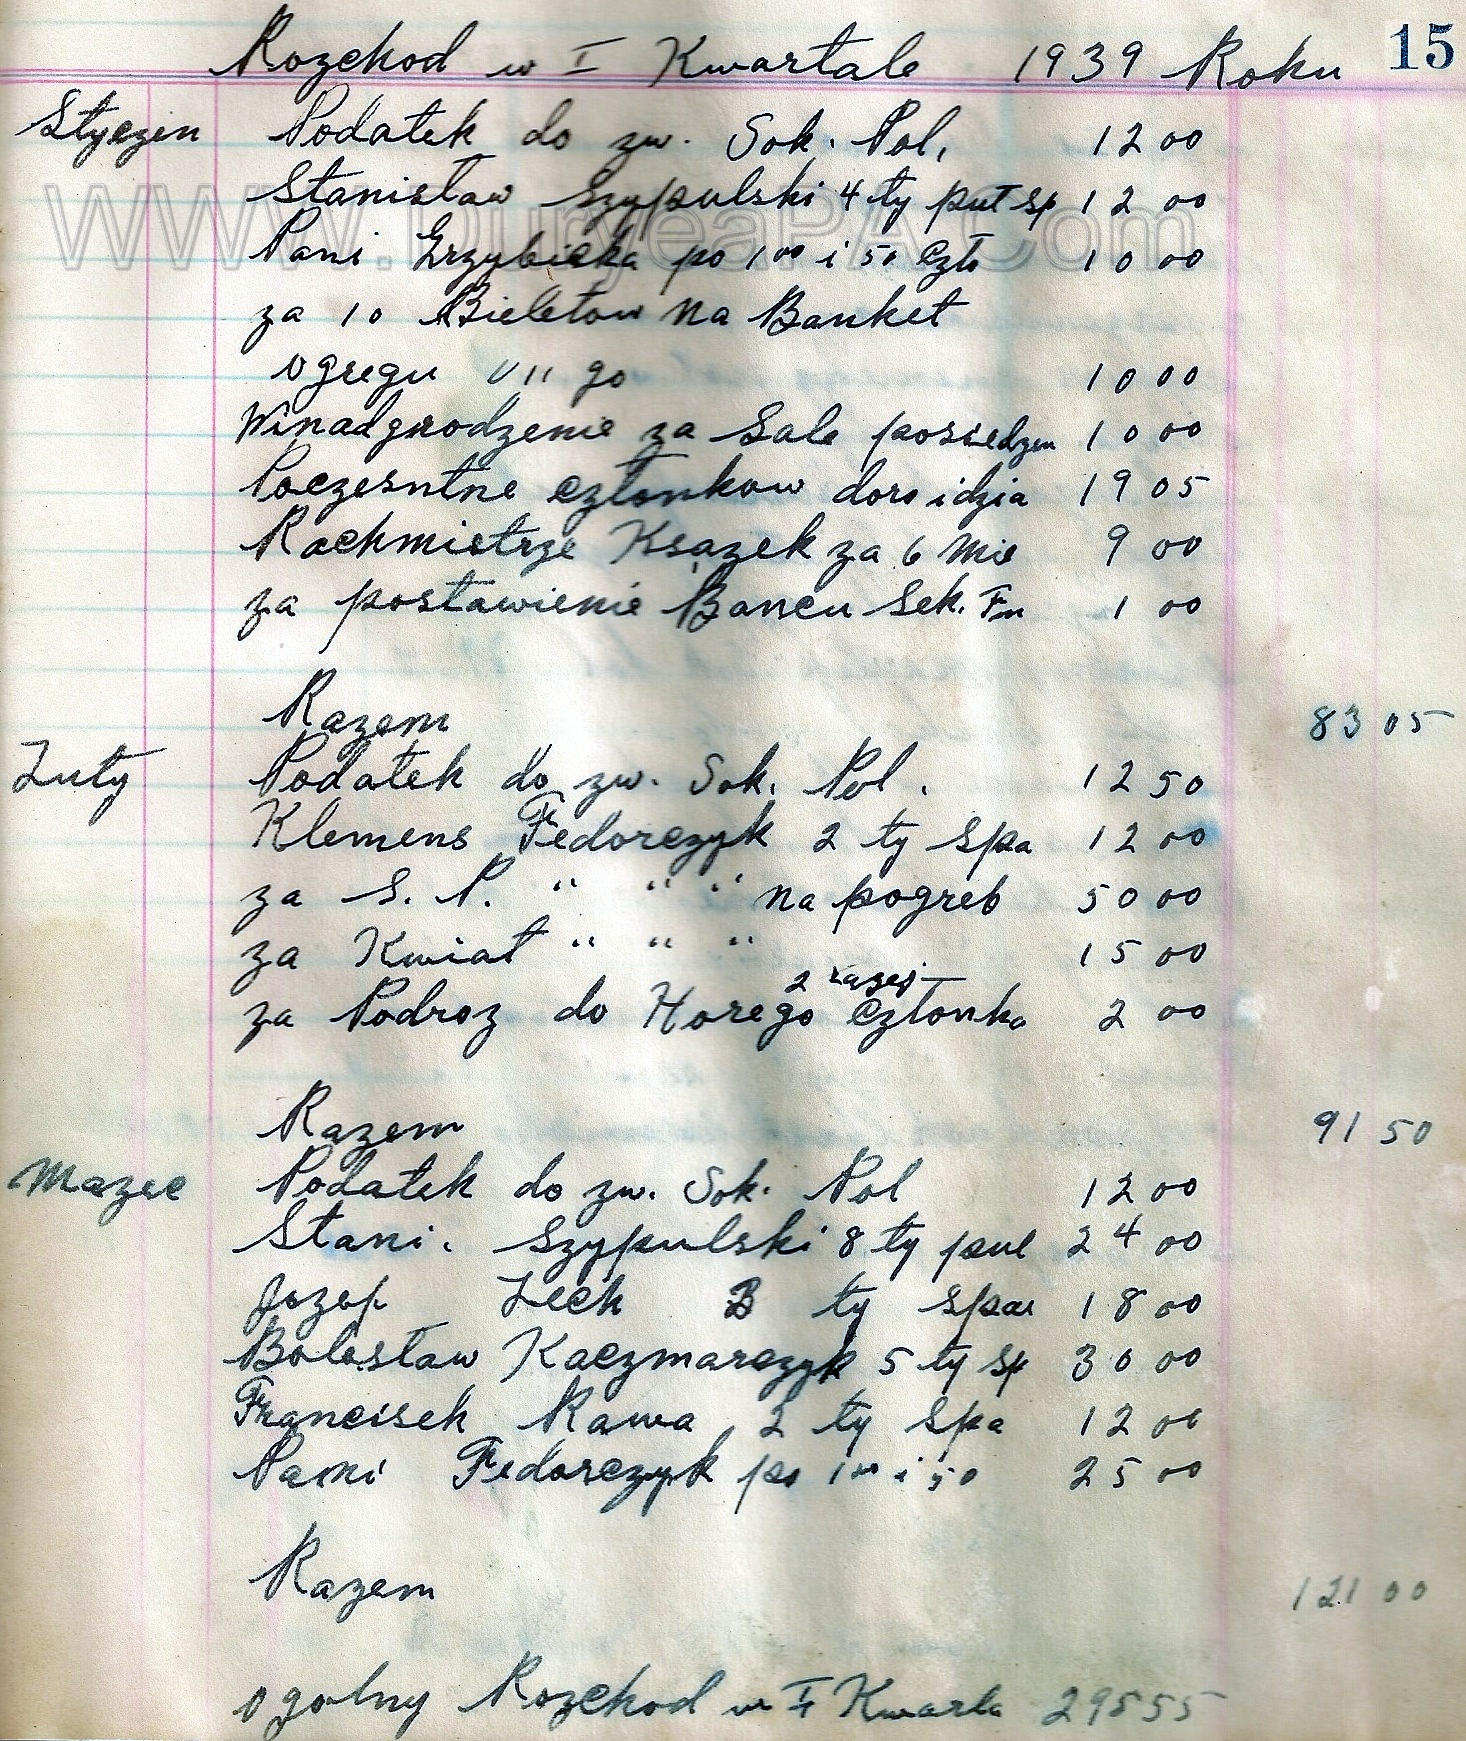 Rozchod w I Kwartale 1939 Roku 15
Styczen Podatek do zw. Sok. Pol. 12 00
www.DuryeaPA.com
Stanisław Szypulski 4 ty put sp 12 00
Pani Grzybicka po 1 00 i 50 czło 10 00
za 10 Bieletow na Banket
ogregu VII go 10 00
Winadgrodzenie za Sale posiedzen 10 00
Poczesntne członkow doro i dzia 19 05
Rachmistrze Ksazek za 6 Mie 9 00
za postawienie Boncu Sek. Fin 1 00
Razem 83 05
Luty Podatek do zw. Sok. Pol. 12 50
Klemens Fedorczyk 2 ty spa 12 00
za S. P. " " " na pogreb 50 00
za Kwiat " " " 15 00
2 razej
za Podroz do Horego członka 2 00
Razem 91 50
Mazec Podatek do zw. Sok. Pol 12 00
Stani. Szypulski 8 ty pul 24 00
Jozef Lech 3 ty spar 18 00
Bolesław Kaczmarczyk 5 ty sp 30 00
Francisek Kawa 2 ty spa 12 00
Pami Fedorczyk po 1 00 i 50 25 00
Razem 121 00
ogolny Rozchod w I Kwarta 295 55